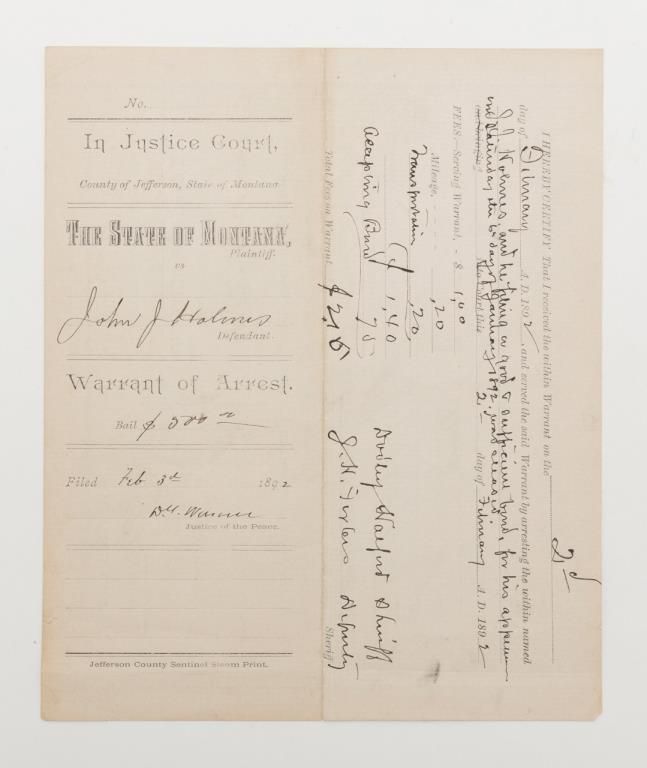 No.
In Justice Court,
County of Jefferson, State of Montana
THE STATE OF MONTANA,
Plaintiff.
vs
John J Holmes
Defendant.
Warrant of Arrest.
Bail $ 500
Filed Feb 3d 1892
Justice of the Peace.
Jefferson County Sentinel Steam Print.
I HEREBY CERTIFY That I received the within Warrant on the 2d
day of February A. D. 1892, and served the said Warrant by arresting the within named
J J Holmes, and he filing a good & sufficient bond, for his
on Saturday the 6 day of 1892 was released
2 day of February A. D. 1892
FEES—Serving Warrant, - $ 1,00
Mileage, - - - ,20
Transportation ,20
1,40
Accepting Bond 75
Total Fees on Warrant $ 2,15
Sheriff
J. H. Deputy
Sheriff